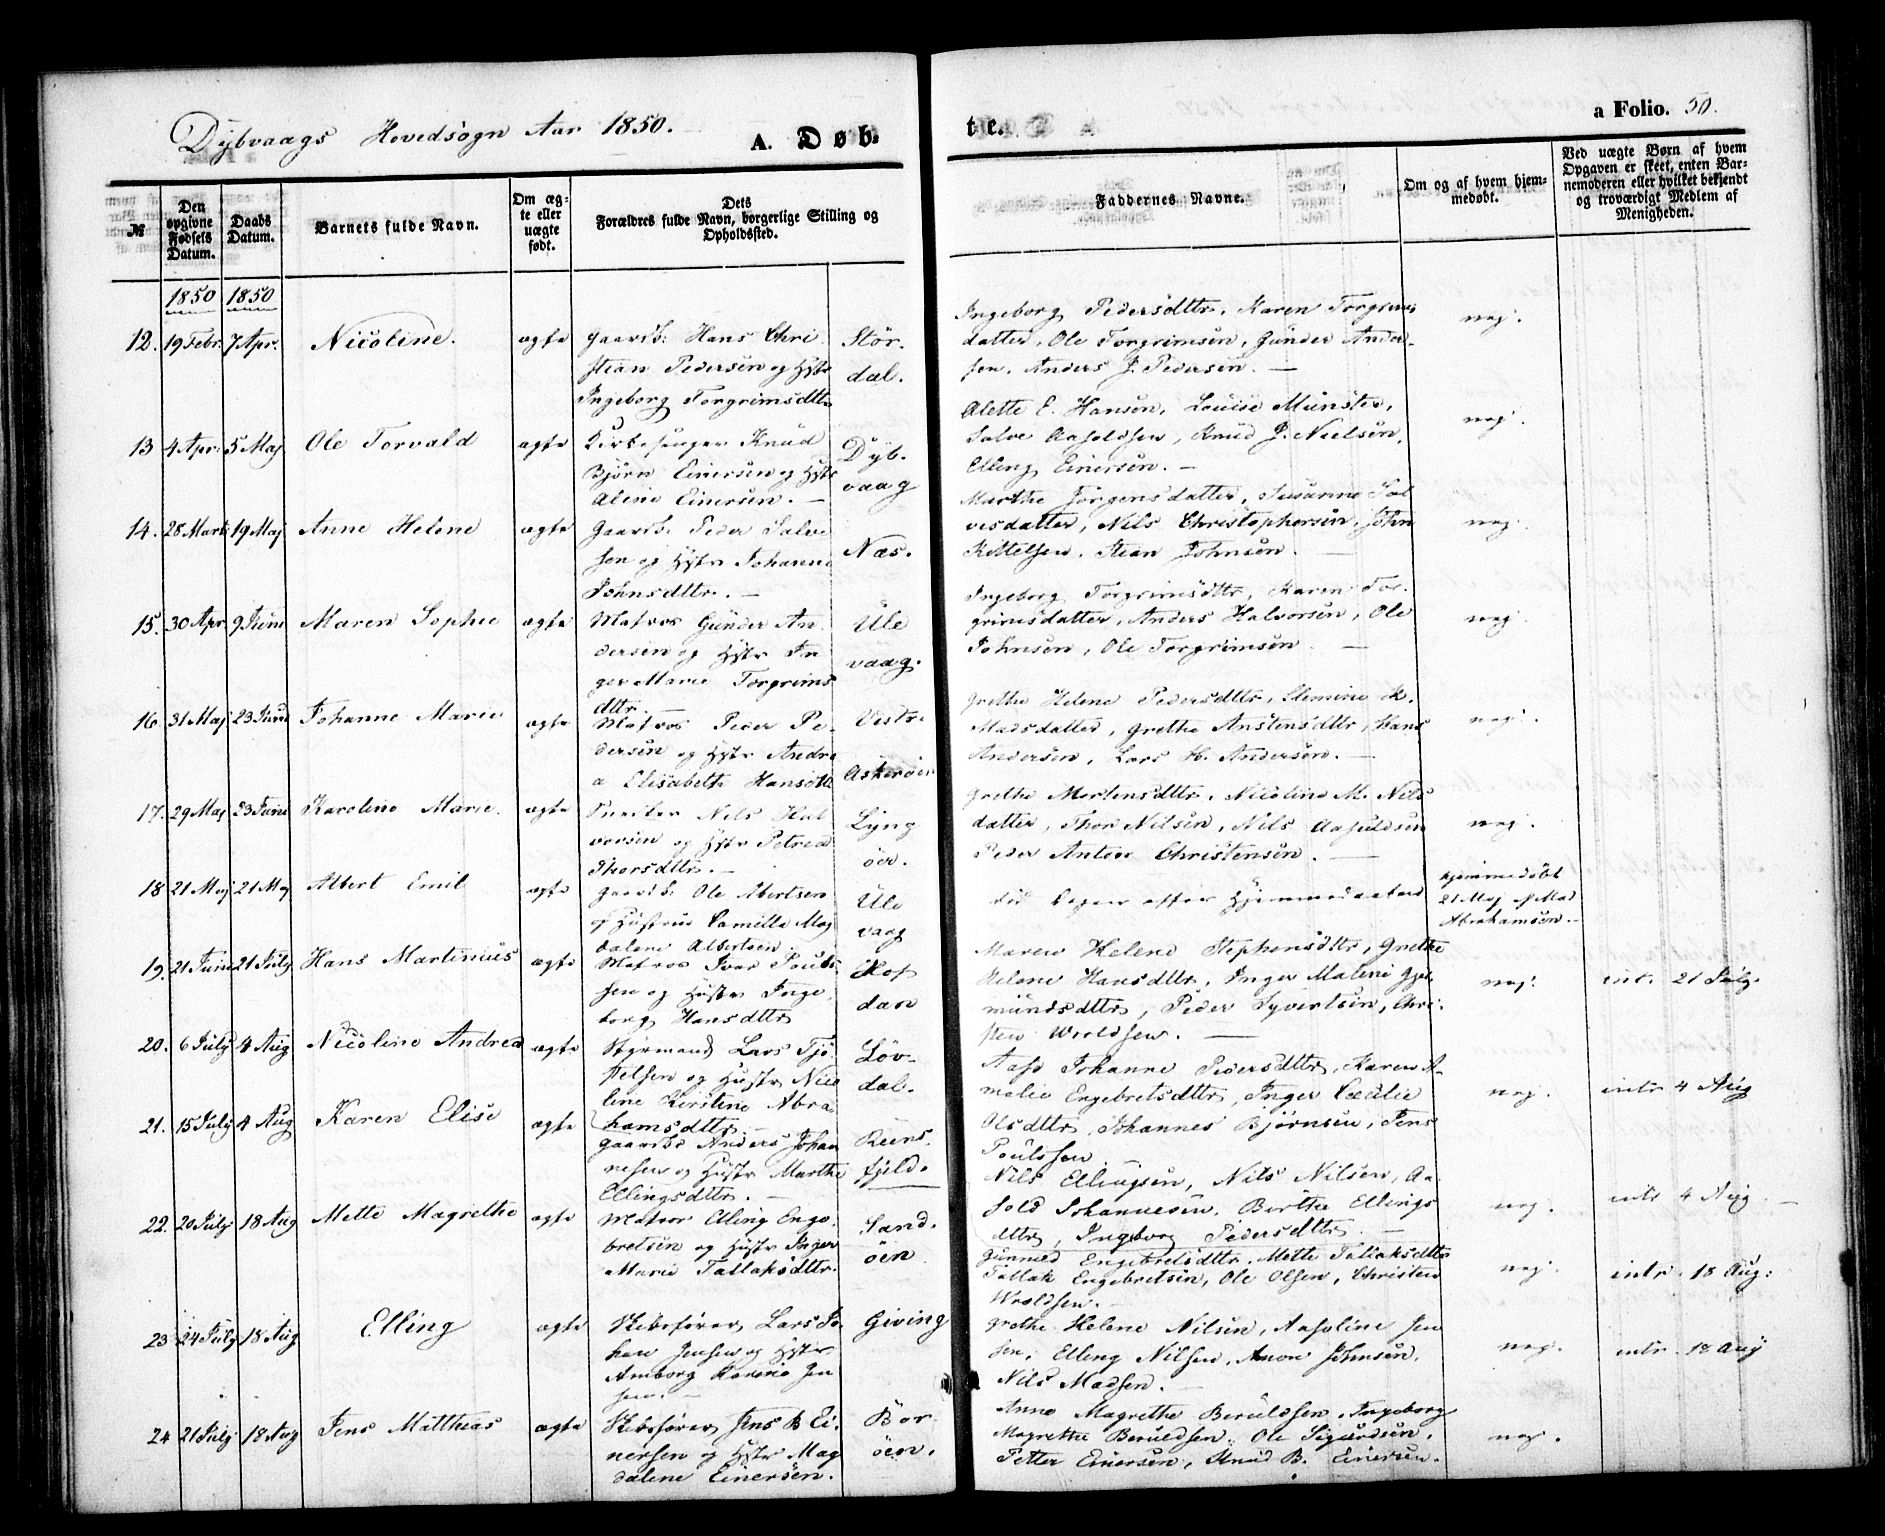 Dybvaags Hovedsogn Aar 1850.
A. Døb-
te.
a Folio. 50.
№
Den opgivne Fødsels Datum.
Daabs Datum.
Barnets fulde Navn.
Om ægte eller uægte født.
Dets
Forældres fulde Navn, borgerlige Stilling og
Opholdssted.
Faddernes Navne.
Om og af hvem hjemmedøbt.
Ved uægte Børn af hvem
Opgaven er skeet, enten Barnemoderen eller hvilket bekjendt
og troværdigt Medlem af
Menigheden.
1850 1850
12. 19 Febr. 7 Apr. Nicoline. ægte
Gaardb: Hans Chri
stian Pedersen og Hstr
Ingeborg Torgrimsdttr
Stör.
dal.
Ingeborg Pedersdttr, Karen Torgrims
datter, Ole Torgrimsen, Gunder Ander-
sen, Anders J. Pedersen. —
nej.
13 4 Apr. 5 Maj Ole Torvald ægte
Kirkesanger Knud
Bjørn Einersen og Hstr
Alene Einersen. —
Dyb.
vaag
Alette E. Hansen, Louise Munster,
Salve Aasoldsen, Knud J. Nielsen,
Elling Einersen. —
nej.
14. 28 Marts 19 Maj Anne Helene ægte
Gaardb: Peder Salve
sen og Hstr Johanne
Johnsdttr. —
Næs.
Marthe Jörgensdatter, Susanne Sal
vesdatter, Nils Christophersen, John
Kittelsen, Stian Johnsen. —
nej.
15. 30 Apr 9 Juni Maren Sophie ægte
Matros Gunder An
dersen og Hstr In
ger Marie Torgrims
dttr. —
Ule
vaag.
Ingeborg Torgrimsdttr, Karen Tor-
grimsdatter, Anders Halvorsen, Ole
Johnsen, Ole Torgrimsen. —
nej.
16. 31 Maj 23 Juni Johanne Marie ægte
Matros Peder Pe-
dersen og Hstr Andre
a Elisabeth Hansdttr
Vestre
Askeröen
Grethe Helene Pedersdttr, Elemine K.
Madsdatter, Grethe Anstensdttr, Hans
Andersen, Lars H. Andersen. —
nej.
17. 29 Maj 23 Juni Karoline Marie. ægte
Nils Hal
vorsen og Hstr Petrea
Thorsdttr. —
Lyng
öer.
Grethe Mortensdttr, Nicoline M. Nils
datter, Thor Nilsen, Nils Aasuldsen
Peder Anton Christensen. —
nej.
18 21 Maj 21 Maj Albert Emil ægte
Gaardb: Ole Abertsen
og Hustrue Camilla Mag
dalene Albertsen.
Ule
vaag
död Dagen efter Hjemmedaaben
hjemmedöbt
21 Maj af Mad
Abrahamsen. —
19. 21 Juni 21 July Hans Martinius ægte
Matros Ivar Pouls
sen og Hustr Inge
borg Hansdttr
dan
Maren Helene Stephensdttr, Grethe
Helene Hansdttr, Inger Malene Gjer
mundsdttr, Peder Syvertsen, Chri-
sten Wroldsen. —
nej.
intr. 21 July.
20. 6 July 4 Aug Nicoline Andrea ægte
Styrmand Lars Tjö
stelsen og Hustr Nico
line Kirstine Abra
hamsdttr. —
Löv-
dal.
Aase Johanne Pedersdttr, Karen A-
malie Engebretsdttr, Inger Cæcilie
Olsdttr, Johannes Bjørnsen, Jens
Poulssen
nej.
intr 4 Aug
21. 15 July 4 Aug Karen Elise ægte
Gaardb: Anders Johan
nesen og Hustr Marthe
Ellingsdttr. —
Reens.
fjeld.
Nils Ellingsen, Nils Nilsen, Aa-
sold Johannesen, Birthe Ellings
dttr, Ingeborg Pedersdttr. —
nej.
intr 4 Aug. —
22. 20 July 18 Aug Mette Magrethe ægte
Matros Elling Enge-
bretsen og Hustr Inger
Marie Tallaksdttr.
Sand.
öen
Gunnild Engebretsdttr, Mette Tallaksdttr
Tallak Engebretsen, Ole Olsen, Christen
Wroldsen. —
nej.
intr. 18 Aug:
23 24 July 18 Aug Elling ægte
Skibsfører Lars Jo
han Jensen og Hstr
Amborg Karine Jen
sen. —
Giving
Grethe Helene Nilsen, Aasoline Jen
sen, Elling Nilsen, Amon Johnsen,
Nils Madsen. —
nej.
intr. 18 Aug
24 21 July 18 Aug Jens Matthias ægte
Skibsfører Jens B. Ei-
nersen og Hstr Mag
dalene Einersen.
Bor-
öen.
Anne Magrethe Beruldsen, Ingeborg
Magrethe Beruldsen, Ole Sigurdsen,
Petter Einersen, Knud B. Einersen.
nej.